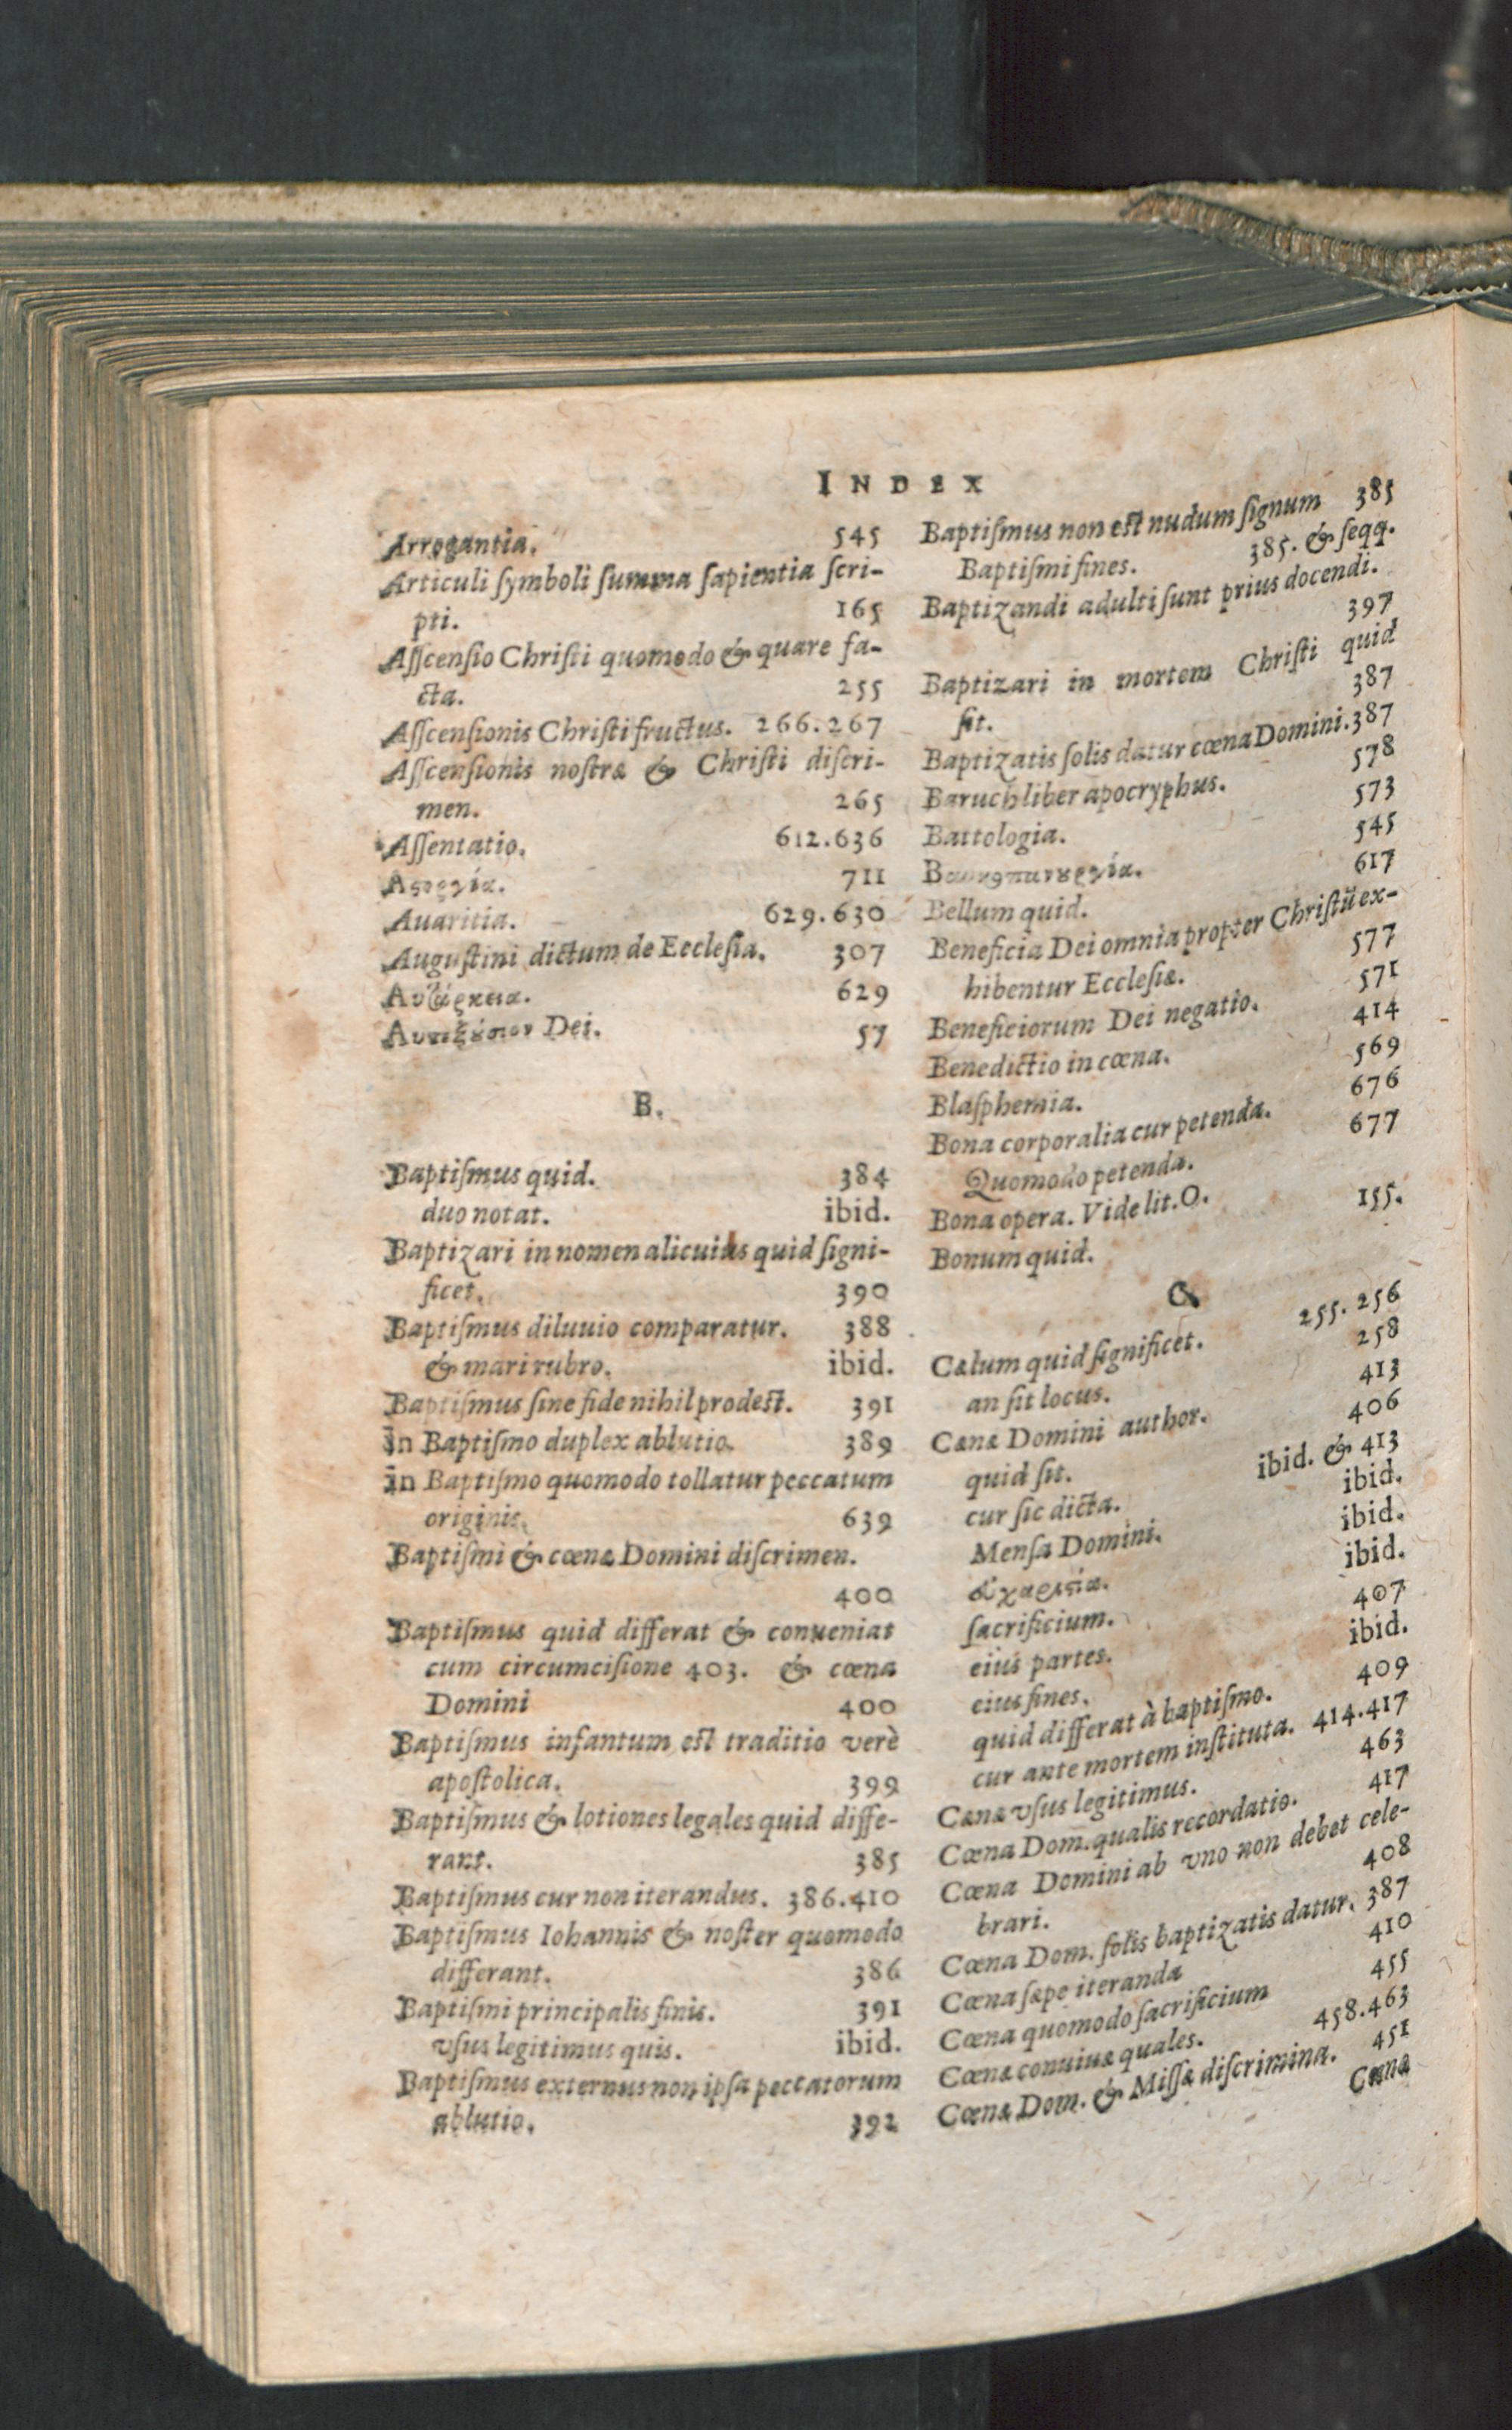 INDEX
Arrogantia. 545
Articuli ſymboli ſumma ſapientia ſcri-
pti. 165
Aſſcenſio Chriſti quomodo & quare fa-
cta. 255
Aſſcenſionis Chriſti fructus. 266.267
Aſſcenſionis noſtræ & Chriſti diſcri-
men. 265
Aſſentatio. 612.636
711
Auaritia. 629.630
Auguſtini dictum de Eccleſia. 307
629
Dei. 57
B.
Baptiſmus quid. 384
duo notat. ibid.
Baptizari in nomen alicuius quid ſigni-
ficet. 390
Baptiſmus diluuio comparatur. 388
& mari rubro. ibid.
Baptiſmus ſine fide nihil prodeſt. 391
in Baptiſmo duplex ablutio. 389
in Baptiſmo quomodo tollatur peccatum
originis. 639
Baptiſmi & cœnæ Domini diſcrimen.
400
Baptiſmus quid differat & conueniat
cum circumciſione 403. & cœna
Domini 400
Baptiſmus infantum eſt traditio verè
apoſtolica. 399
Baptiſmus & lotiones legales quid diffe-
rant. 385
Baptiſmus cur non iterandus. 386.410
Baptiſmus Iohannis & noſter quomodo
differant. 386
Baptiſmi principalis finis. 391
vſus legitimus quis. ibid.
Baptiſmus externus non ipſa peccatorum
ablutio. 392
Baptiſmus non eſt nudum ſignum 385
Baptiſmi fines. 385. & ſeqq.
Baptizandi adulti ſunt prius docendi.
397
Baptizari in mortem Chriſti quid
ſit. 387
Baptizatis ſolis datur cœna Domini. 387
Baruch liber apocryphus. 578
Battologia. 573
545
Bellum quid. 617
Beneficia Dei omnia propter Chriſtū ex-
hibentur Eccleſiæ. 577
Beneficiorum Dei negatio. 571
Benedictio in cœna. 414
Blaſphemia. 569
Bona corporalia cur petenda. 676
Quomodo petenda. 677
Bona opera. Vide lit. O.
Bonum quid. 155.
C
Cælum quid ſignificet. 255. 256
an ſit locus. 258
Cænæ Domini author. 413
quid ſit. 406
cur ſic dicta. ibid. & 413
Menſa Domini. ibid.
ibid.
ſacrificium. ibid.
eius partes. 407
eius fines. ibid.
quid differat à baptiſmo. 409
cur ante mortem inſtituta. 414.417
Cænæ vſus legitimus. 463
Cœna Dom. qualis recordatio. 417
Cœna Domini ab vno non debet cele-
brari. 408
Cœna Dom. ſolis baptizatis datur. 387
Cœna ſæpe iteranda 410
Cœna quomodo ſacrificium 455
Cœnæ conuiuæ quales. 458.463
Cœnæ Dom. & Miſſæ diſcrimina. 451
Cœna